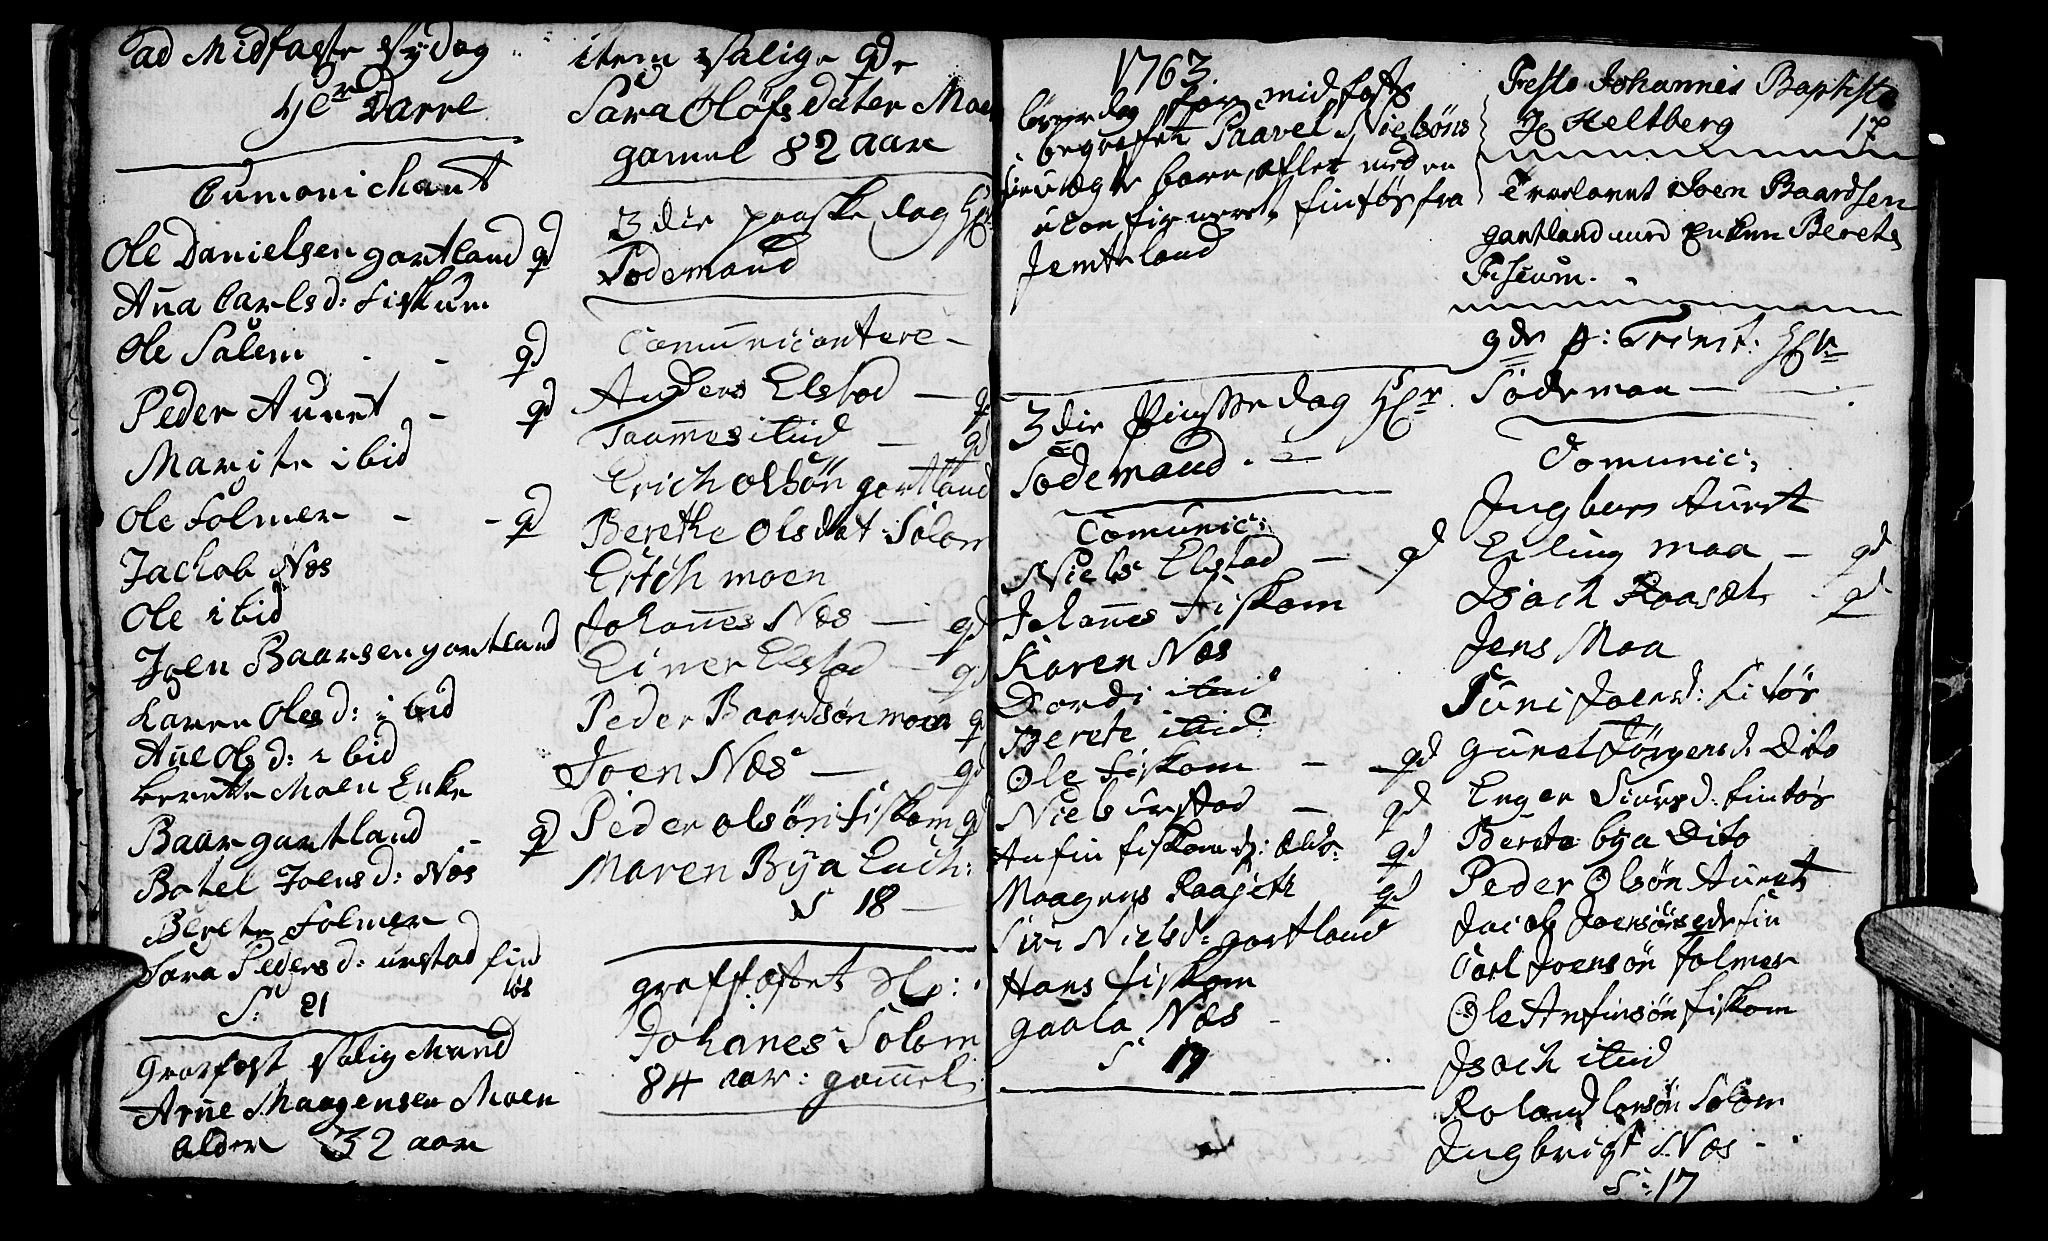 ad Midfaste Sydag
Hr Darre
Cumonichant
Ole Danielsen gartland qd
Ana Carlsd: Fiskum
Ole Salem - - qd
Peder Auret - qd
Marite ibid
Ole Folmer - - qd
Jachob Næs
Ole ibid
Joen Baarsen gartland
Karen Olesd: ibid
Ane Olsd: ibid
berette Moen Enke
Baar gartland - qd
Botel Joensd: Næs
Berete Folmer
Sara Pedersd: urstad find
lös
S: 21
Graffæst Salig Mand
Arne Maagensen Moen
alder 32 aar
item Salige qd
Sara Olofsdater Moen
gamel 82 aar
3die paaske dag Hr
Södemand
Comunicantere -
Anders Elstad - q
Taames itid - qd
Erich Olsön gartland
Berethe Olsdat: Solom
Erich moen
Johanes Næs - qd
Einer Elstad - qd
Peder Baardsön moen qd
Joen Næs - qd
Peder olsön fiskom qd
Maren Bya Ench:
S 18 -
graffæstet Sl:
Johanes Solom
84 aar: gammel
1763.
löverdag for midfaste
begrafvet Paavel Nielsöns
uægte barn, aflet med en
uconfirmeret fintös fra
Jemteland
3die Pingstedag Hr
Södemand. -
Comunic:
Niels Elstad - qd
Johanes Fiskom
Karen Næs
Dordi itid
Berete itid
Ole Fiskom - - qd
Niels urstad - qd
Anfin fiskom d: Æld: qd
Maagens Raaseth qd
Siri Nielsd: gartland
Hans fiskom
gaala Næs -
S 17
Festo Johannis Baptistæ
H Heltberg 17
Trolovet Joen Baardsen
gartland med Enken Berete
Fiscum.
4de p: Trinit: Hr
Södeman -
Comunic:
Ingbor Auret
Erling maa - qd
Isach Raasæt - qd
Jens Maa
Guri Joensd: fitös
Guret Jörgensd: Dito
Enger Siursd: fintös
Berete bya Dito
Peder Olsön Auret
Jacob Joensön fin
Carl Joensön folmer
Ole Anfinsön fiskom
Isach itid
Roland larsön Solom
Ingbrigt Næs -
S: 17